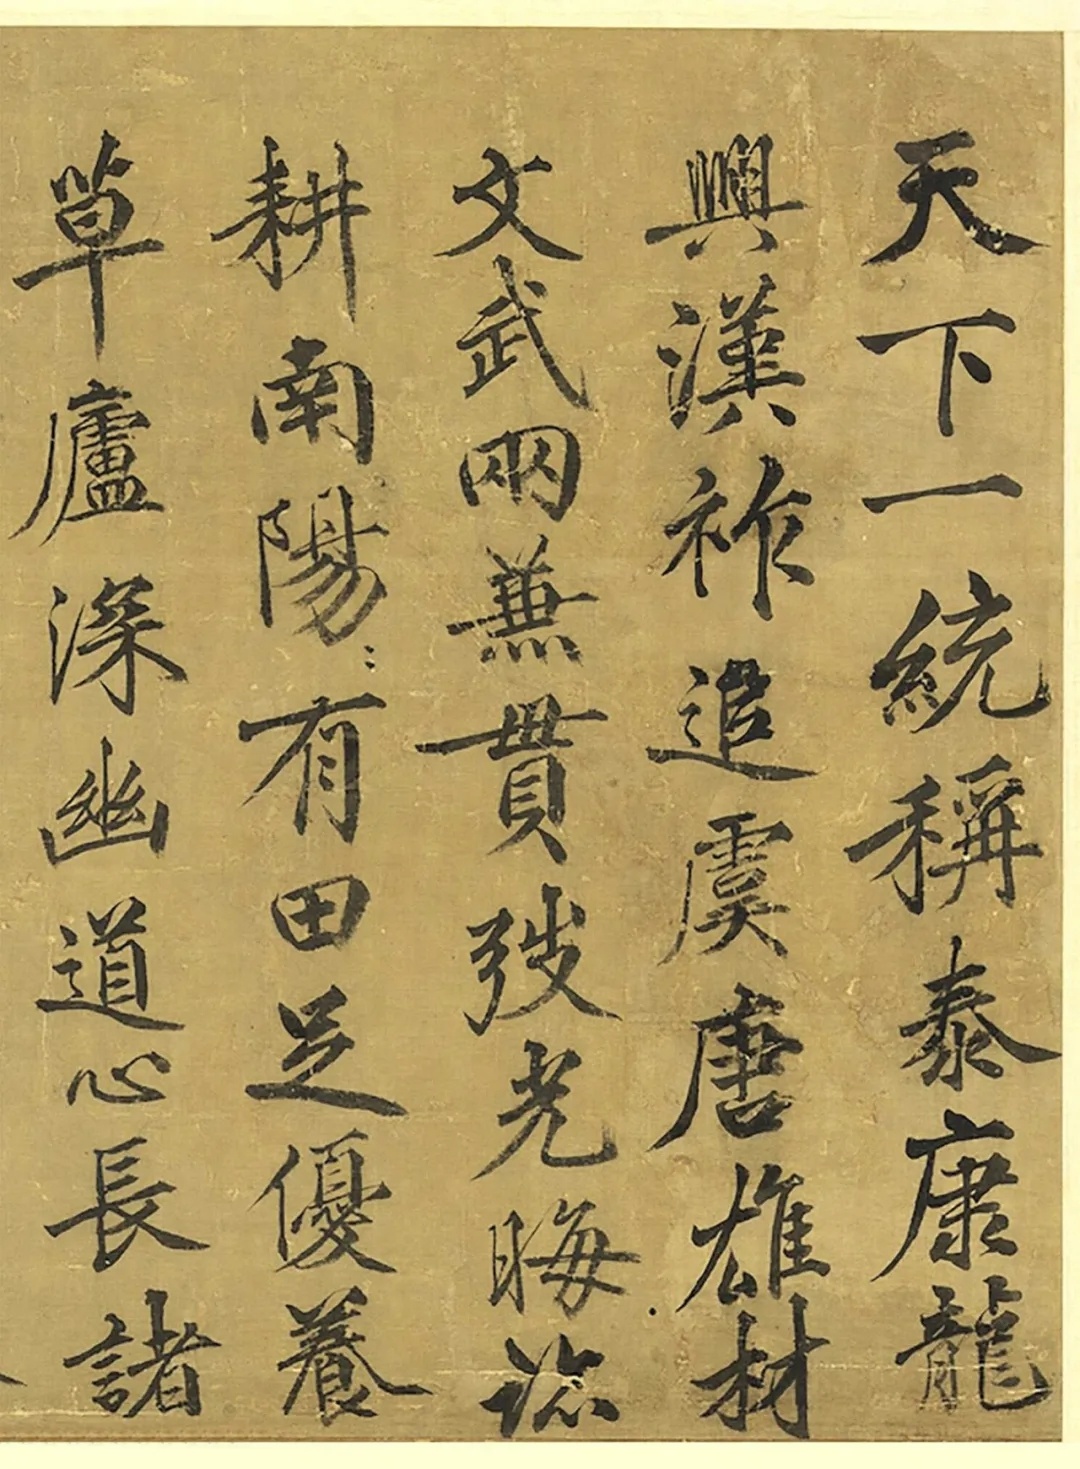 天下一統稱泰康龍
興漢祚追虞唐雄材
文武兩兼貫弢光晦跡
耕南陽有田足優養
草廬深幽道心長諸